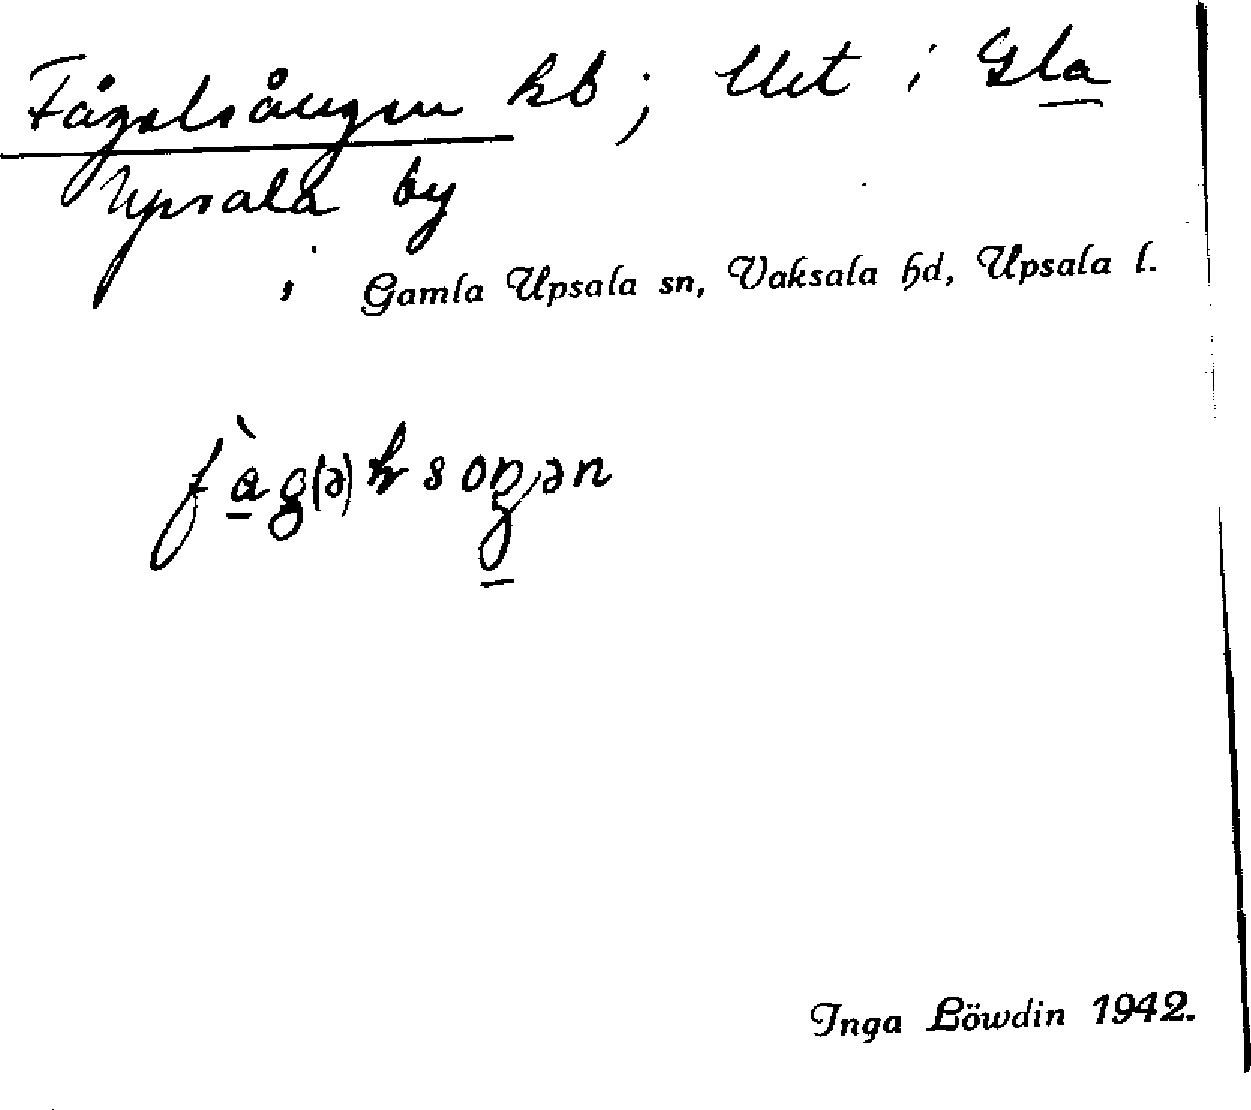 Fågelsången hb; Uet i Gla
Upsala by
i Gamla Upsala sn, Vaksala hd, Upsala l.
Inga Löwdin 1942.